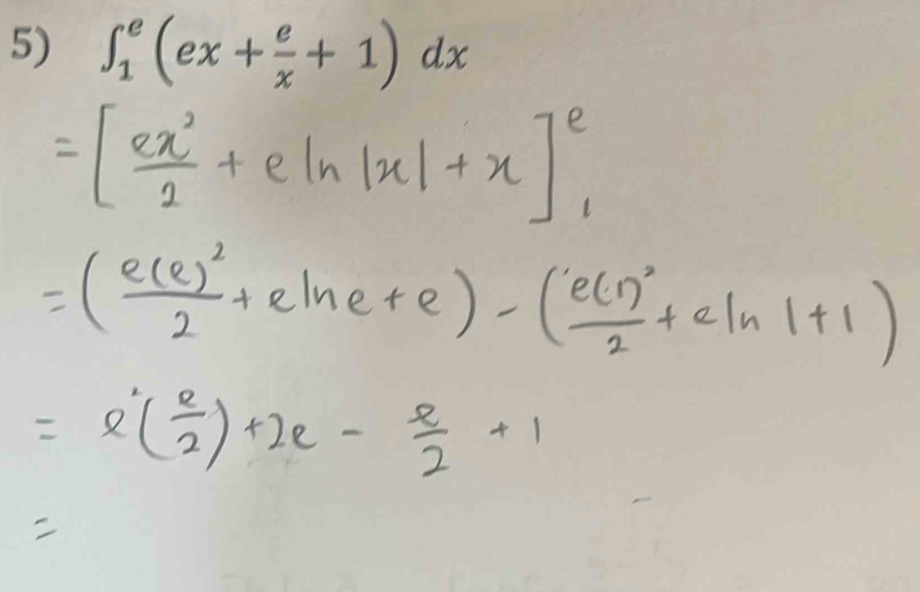 5) ∫₁ᵉ (ex + e/x + 1) dx
= [ex²/2 + e ln |x| + x]₁ᵉ
= (e(e)²/2 + e ln e + e) - (e(1)²/2 + e ln 1 + 1)
= e²(e/2) + 2e - e/2 + 1
=